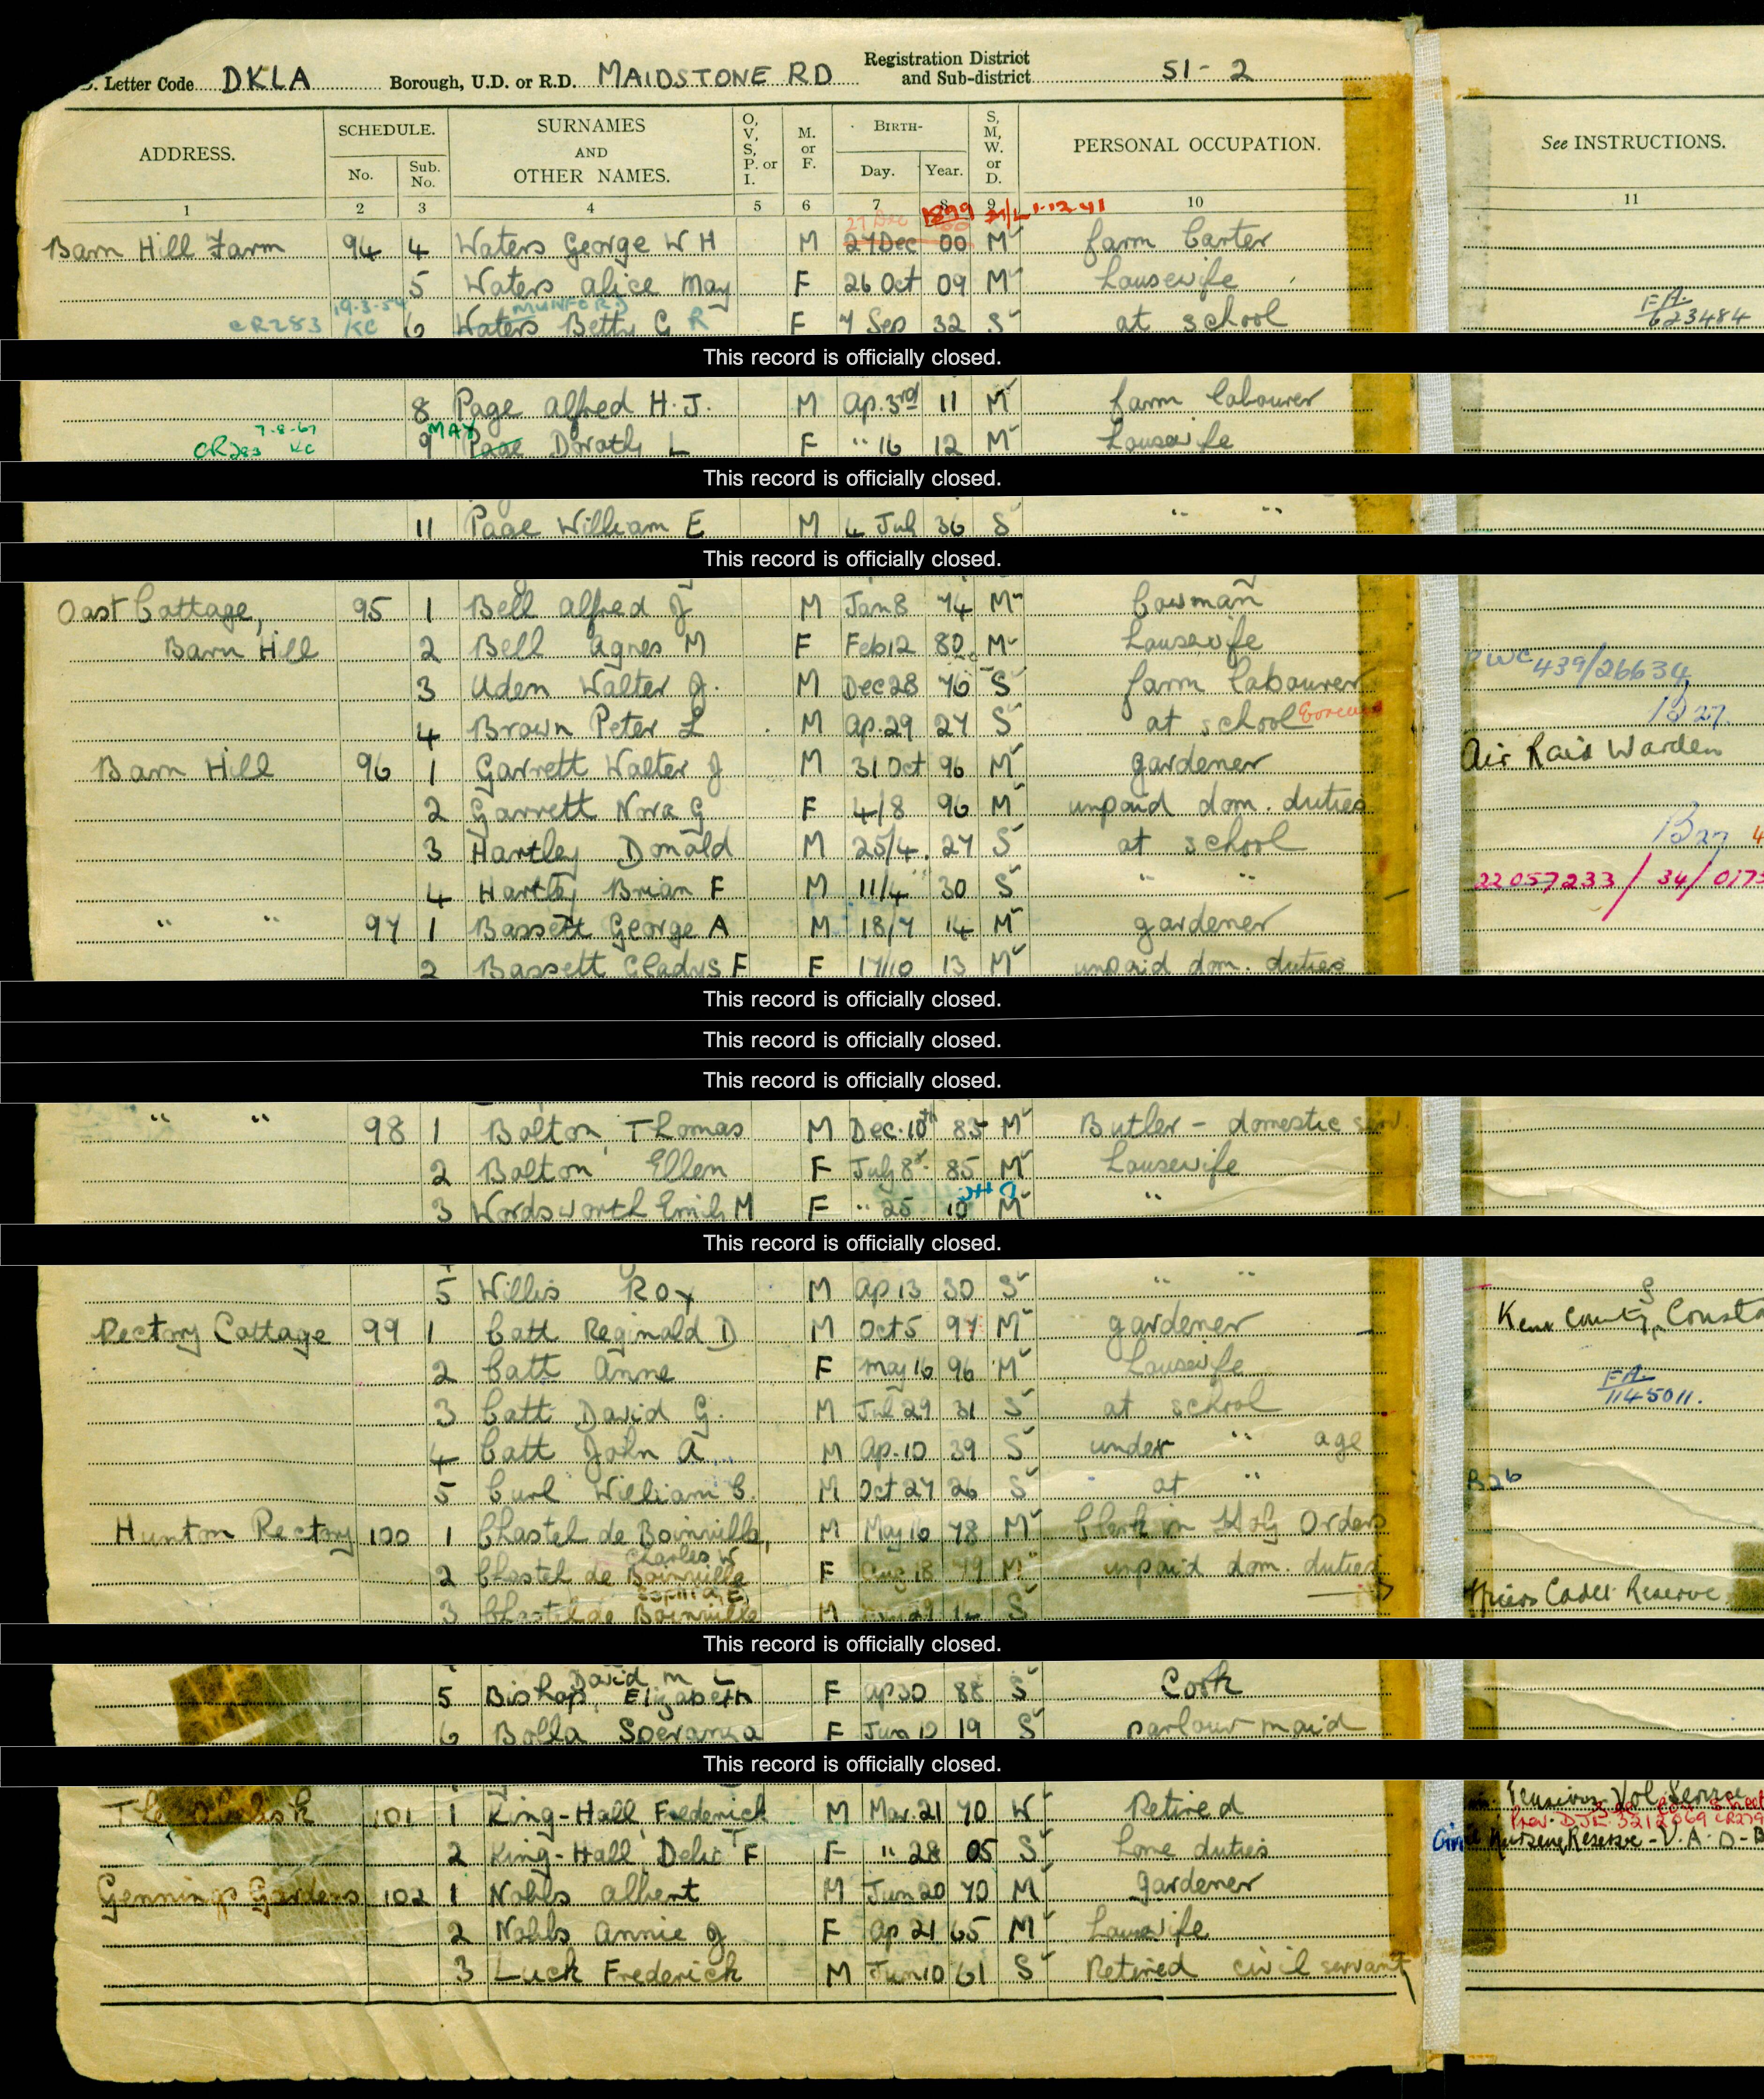 Letter Code DKLA Borough, U.D. or R.D. MAIDSTONE RD Registration District and Sub-district 51-2
ADDRESS. SCHEDULE. No. Sub. No. SURNAMES AND OTHER NAMES. O, V, S, P. or I. M. or F. BIRTH- Day. Year. S, M, W. or D. PERSONAL OCCUPATION. See INSTRUCTIONS.
1 2 3 4 5 6 7 8 9 10 11
27 Dec 1899 1-12-41
Barn Hill Farm 94 4 Waters George W H M 27 Dec 00 M farm Carter
5 Waters Alice May F 26 Oct 09 M housewife
19.3.54 MUNFORD F.A.
CR283 KC 6 Waters Betty G R F 7 Sep 32 S at school 623484
This record is officially closed.
8 Page Alfred H. J. M Ap. 3rd 11 M farm labourer
7.8.67 MAY
CR283 KC 9 Page Dorothy L F " 16 12 M housewife
This record is officially closed.
11 Page William E M 4 Jul 36 S " "
This record is officially closed.
Oast Cottage, 95 1 Bell Alfred J M Jan 8 74 M Cowman
Barn Hill 2 Bell Agnes M F Feb 12 80 M housewife
3 Uden Walter J. M Dec 28 76 S farm labourer 439/26634
4 Brown Peter L M Ap. 29 27 S at school B27.
Barn Hill 96 1 Garrett Walter J M 31 Oct 96 M gardener Air Raid Warden
2 Garrett Nora G F 4/8 96 M unpaid dom. duties
3 Hartley Donald M 25/4 27 S at school B27 4
4 Hartley Brian F M 11/4 30 S " " 22057233/34/0175
" " 97 1 Bassett George A M 18/7 14 M gardener
2 Bassett Gladys F F 17/10 13 M unpaid dom. duties
This record is officially closed.
This record is officially closed.
This record is officially closed.
" " 98 1 Bolton, Thomas M Dec. 10th 85 M Butler - domestic serv.
2 Bolton, Ellen F July 8 85 M housewife
3 Wordsworth Emily M F " 25 10 M "
This record is officially closed.
5 Willis Roy M Ap 13 30 S " "
Rectory Cottage 99 1 Catt Reginald D M Oct 5 97 M gardener Kent County Consta
2 Catt Anne F May 16 96 M housewife F.A.
3 Catt David G. M Jul 29 31 S at school 1145011.
4 Catt John A M Ap. 10 39 S under " age
5 Curl William C. M Oct 27 26 S at " B26
Hunton Rectory 100 1 Chastel de Boinville, M May 16 78 M Clerk in Holy Orders
Charles W
2 Chastel de Boinville F Aug 18 79 M unpaid dom. duties
3 Chastel de Boinville M S Cadet Reserve
This record is officially closed.
David M L
5 Bishop, Elizabeth F Ap 30 88 S Cook
6 Bolla Speranza F Jun 19 S parlour maid
This record is officially closed.
The 101 1 King-Hall, Frederick M Mar. 21 70 W Retired
2 King-Hall, F F " 28 05 S home duties Civil Nursing Reserve - V.A.D - B
Gennings Gardens 102 1 Nobbs Albert M Jun 20 70 M gardener
2 Nobbs Annie J F Ap 21 65 M housewife
3 Luck Frederick M Jun 10 61 S Retired civil servant